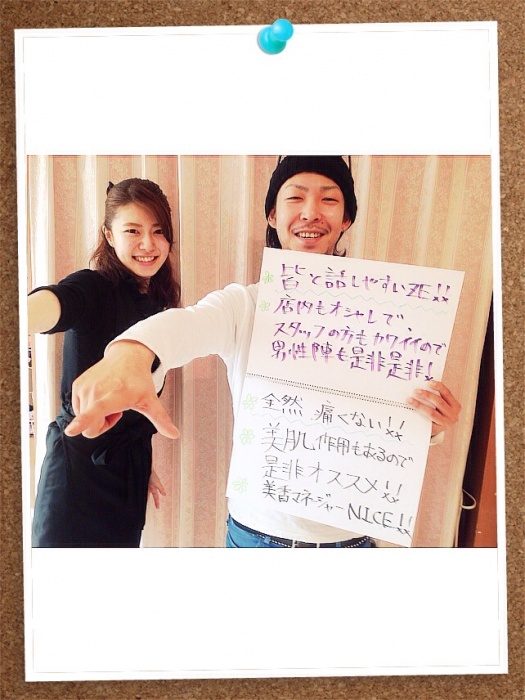 皆と話しやすいZE!!
店内もオシャレで、
スタッフの方もカワイイので
男性陣も是非是非!
全然 痛くない!!
美肌作用もあるので
是非オススメ!!
美香マネジャーNICE!!